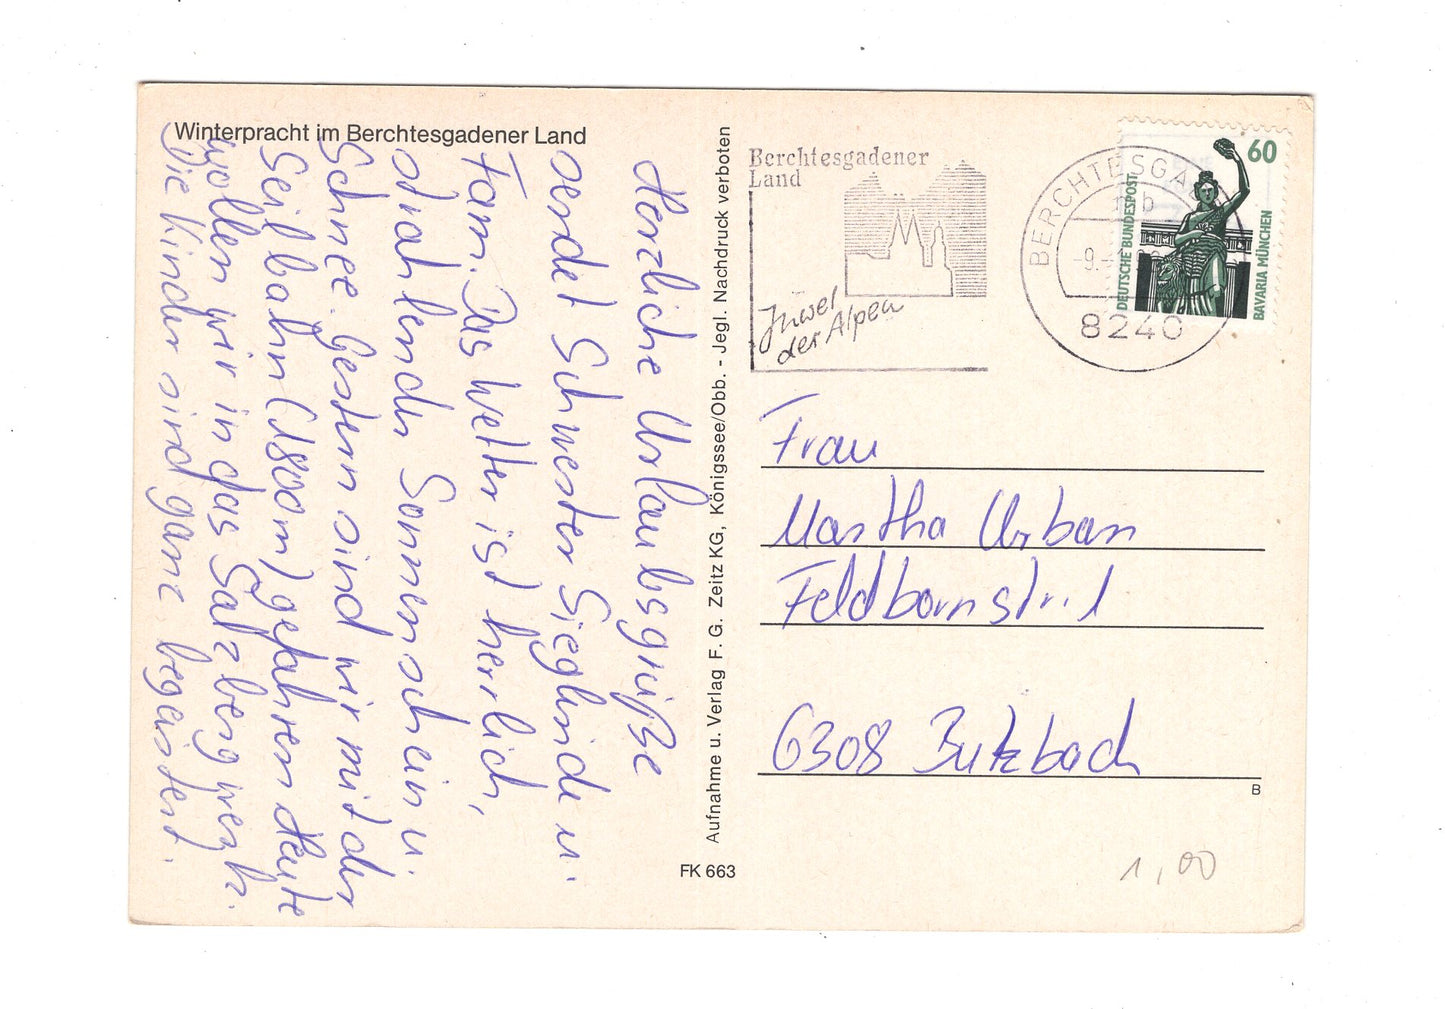 Winterpracht im Berchtesgadener Land
Herzliche Urlaubsgrüße
sendet Schwester Sieglinde u.
Fam. Das Wetter ist herrlich,
strahlender Sonnenschein u.
Schnee. Gestern sind wir mit der
Seilbahn (1800m) gefahren Heute
wollen wir in das Salzbergwerk.
Die Kinder sind ganz begeistert.
Aufnahme u. Verlag F. G. Zeitz KG, Königssee/Obb. - Jegl. Nachdruck verboten
FK 663
Berchtesgadener
Land
Juwel
der Alpen
BERCHTESGA
b
-9.-
8240
60
DEUTSCHE BUNDESPOST
BAVARIA MÜNCHEN
Frau
Martha Urban
Feldbornstr. 1
6308 Butzbach
B
1,00